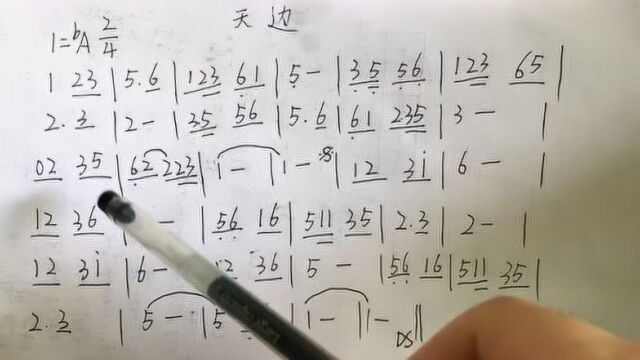 天边
1=ᵇA 2/4
1 23 | 5.6 | 123 61 | 5 - | 35 56 | 123 65 |
2.3 | 2 - | 35 56 | 5.6 | 61 235 | 3 - |
02 35 | 62 223 | 1 - | 1 - 𝄋 | 12 3i | 6 - |
12 36 | - | 56 16 | 511 35 | 2.3 | 2 - |
12 3i | 6 - | 12 36 | 5 - | 56 16 | 511 35 |
2.3 | 5 - | 5 | 1 - || 1 - DS ||